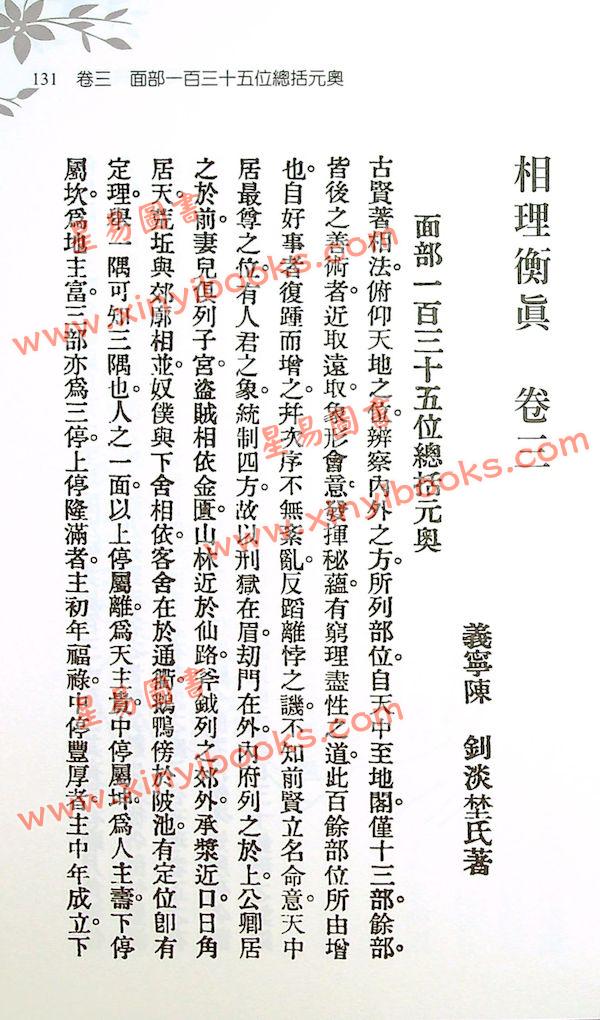 131 卷三 面部一百三十五位總括元奧
相理衡眞 卷三
義寧陳 釗淡埜氏著
面部一百三十五位總括元奧
古賢著相法俯仰天地之位辨察內外之方所列部位自天中至地閣僅十三部餘部。
皆後之善術者近取遠取象形會意發揮秘蘊有窮理盡性之道此百餘部位所由增
也。自好事者復踵而增之幷次序不無紊亂反蹈離悖之譏不知前賢立名命意天中
居最尊之位有人君之象統制四方。故以刑獄在眉。刧門在外內府列之於上公卿居
之於前妻兒俱列子宮盜賊相依金匱山林近於仙路斧鉞列之郊外承漿近口日角
居天。荒坵與郊廓相並奴僕與下舍相依。客舍在於通衢鵝鴨傍於陂池。有定位卽有
定理。舉一隅可知三隅也。人之一面以上停屬離爲天主貴。中停屬坤爲人主壽。下停
屬坎爲地主富三部亦爲三停。上停隆滿者主初年福祿。中停豐厚者主中年成立。下
星易圖書
www.xinyibooks.com
星易圖書
www.xinyibooks.com
星易圖書
www.xinyibooks.com